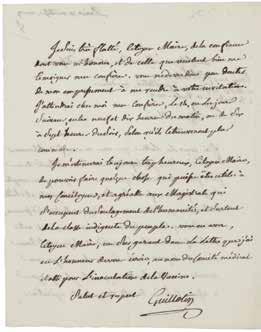 Je suis très flatté, Citoyen Maire, de la confiance
dont vous m'honorez, et de celle que veulent bien me
témoigner mes confrères. vous ne devez pas douter
de mon empressement à me rendre à votre invitation.
J'attendrai chez moi mes confrères, le 16, ou les jours
suivans, entre neuf et dix heures du matin, ou de six
à sept heures du soir, selon qu'ils le trouveront plus
commode.
Je m'estimerai toujours très heureux, Citoyen Maire,
de pouvoir faire quelque chose qui puisse être utile à
mes Concitoyens, et agréable aux Magistrats qui
s'occupent du soulagement de l'humanité, et surtout
de la classe indigente du peuple. vous en avez,
Citoyen Maire, un sûr garant dans la Lettre que j'ai
eu l'honneur de vous écrire, au nom du Comité médical
établi pour l'inoculation de la Vaccine.
Salut et respect
Guillotin